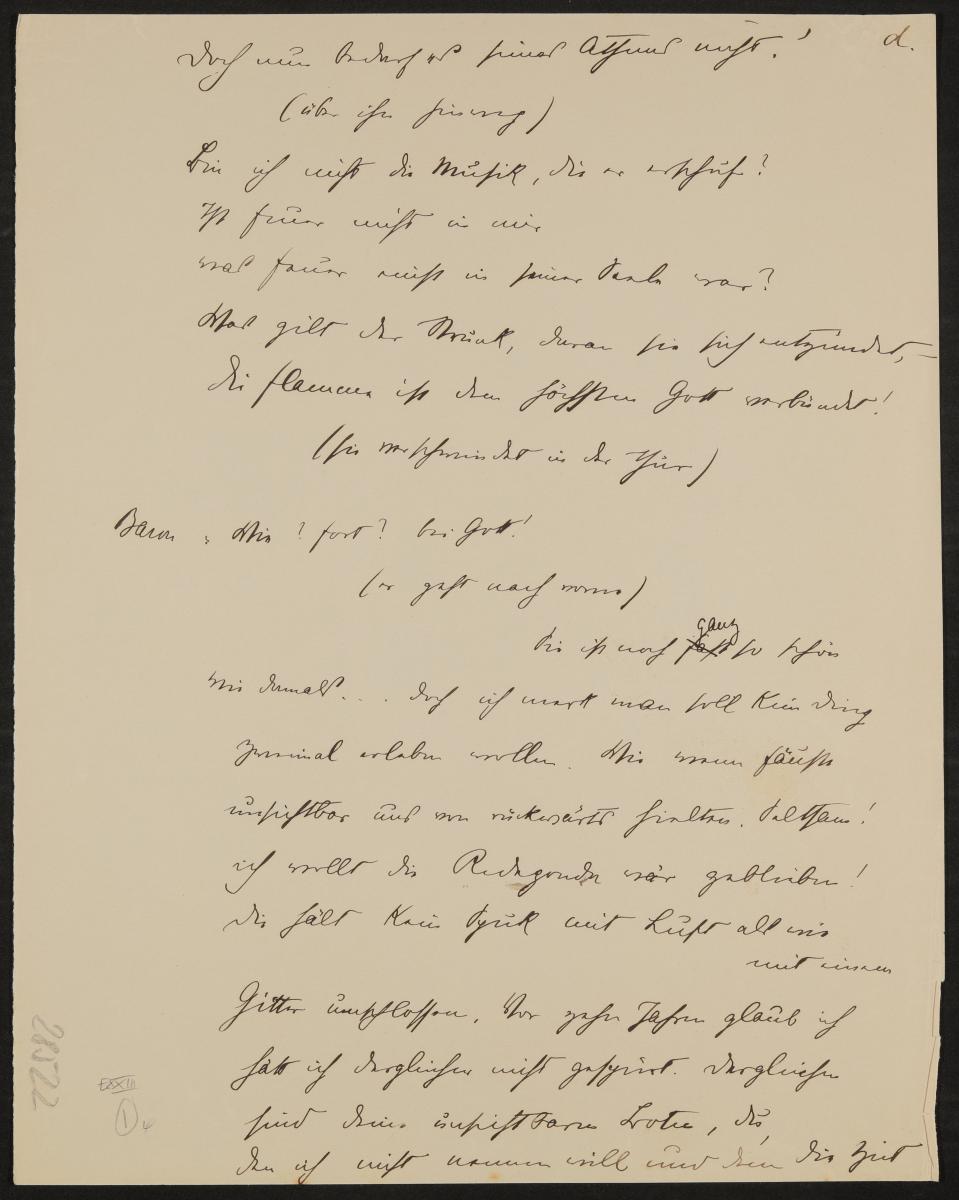 d.
Doch nun bedarf es seines Athems nicht!
(über ihn hinweg)
Bin ich nicht die Musik, die er erschuf?
Ist Feuer nicht in mir
was Feuer einst in seiner Seele war?
Was gilt der Strunk, daran sie sich entzündet, –
die Flamme ist dem höchsten Gott verbündet!
(sie verschwindet in der Thür)
Baron: Wie? fort? bei Gott!
(er geht nach vorne)
ganz
Sie ist noch fast so schön
wie damals... doch ich merk man soll kein Ding
zweimal erleben wollen. Wie wenn Fäuste
unsichtbar uns von rückwärts hielten. Seltsam!
ich wollt die Redegonda wär geblieben!
Die hält kein Spuk mit Luft als wie
mit einem
Gitter umschlossen. Vor zehn Jahren glaub ich
hätt ich dergleichen nicht gespürt. Dergleichen
sind deine unsichtbaren Boten, du,
den ich nicht nennen will und dem die Zeit
28522
XXIII
1